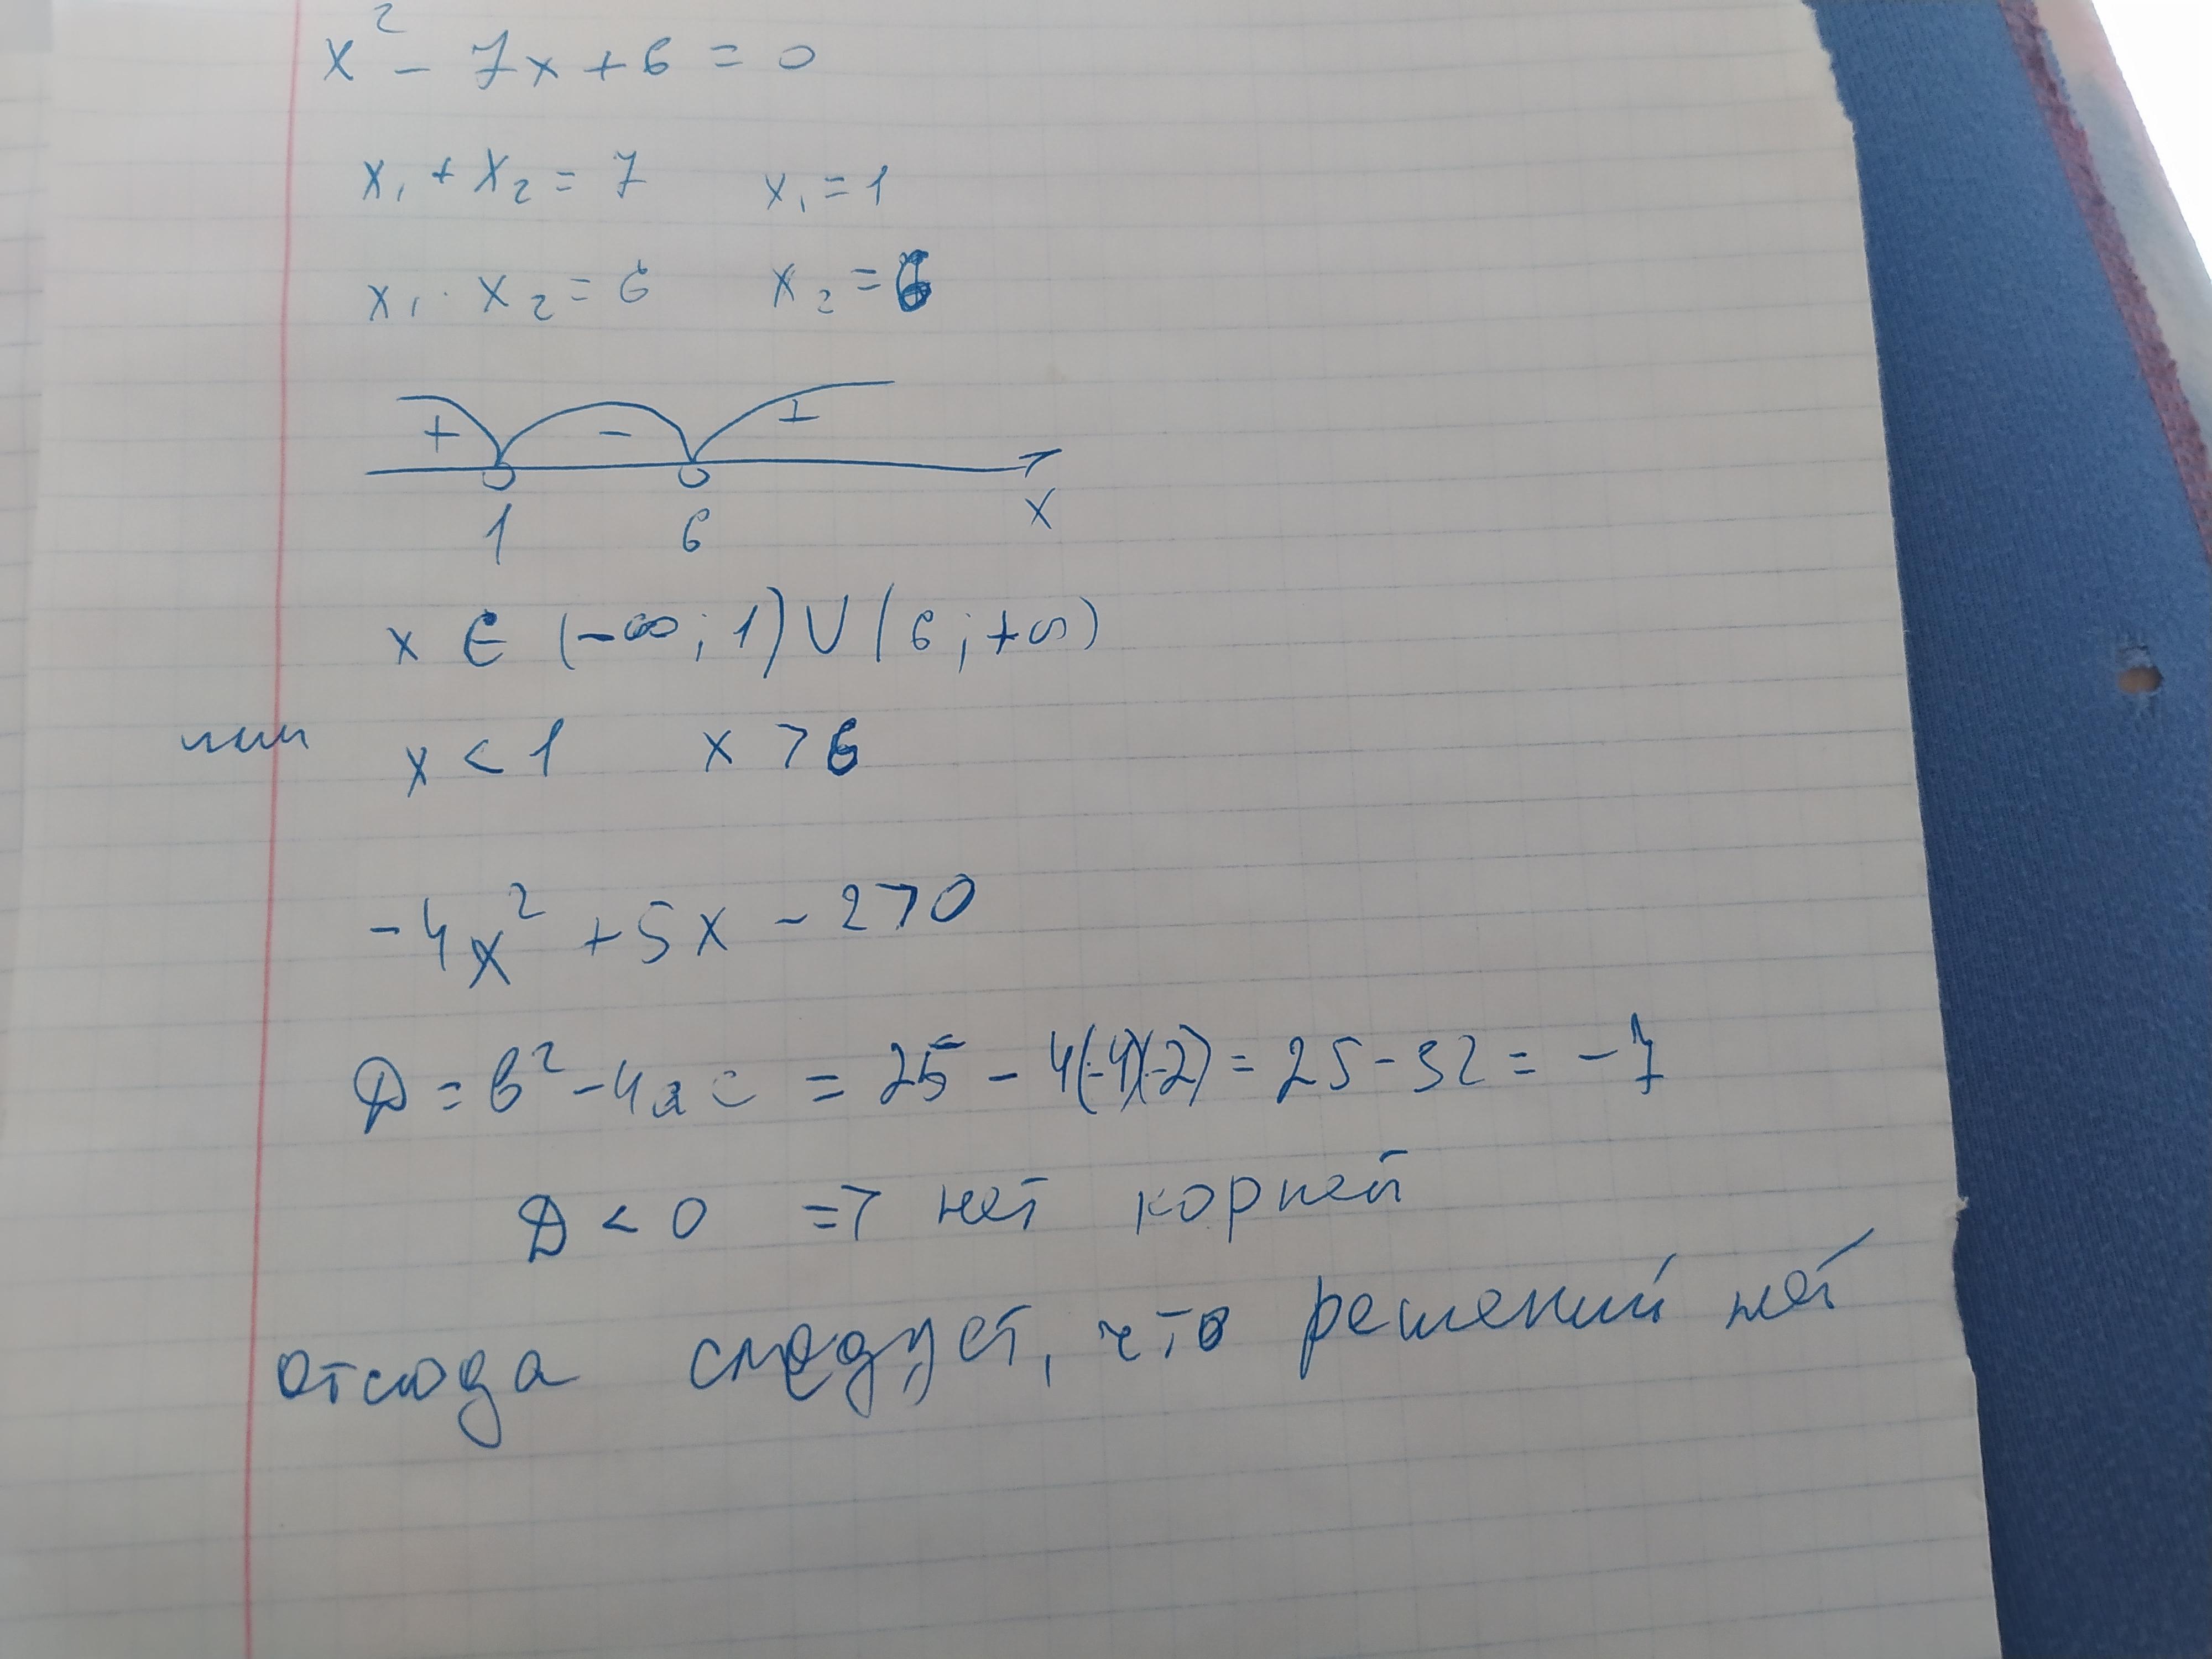 x² - 7x + 6 = 0
x₁ + x₂ = 7 x₁ = 1
x₁ · x₂ = 6 x₂ = 6
+ - +
1 6 x
x ∈ (-∞; 1) ∪ (6; +∞)
или x < 1 x > 6
-4x² + 5x - 2 > 0
D = b² - 4ac = 25 - 4(-4)(-2) = 25 - 32 = -7
D < 0 => нет корней
отсюда следует, что решений нет